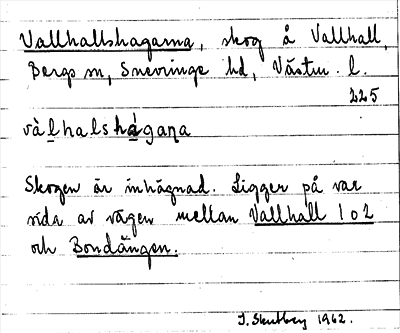 Vallhallshagarna, skog å Vallhall,
Bergs sn, Snevringe hd, Västm. l.
225
vàl̲halshá̲gaṇa
Skogen är inhägnad. Ligger på var
sida av vägen mellan Vallhall 1 o 2
och Bondängen.
1962.